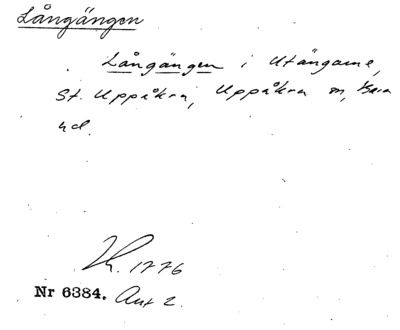 Långängen
Långängen i Utängarne,
St. Uppåkra, Uppåkra sn, Bara
hd.
1776
Nr 6384. Akt 2.